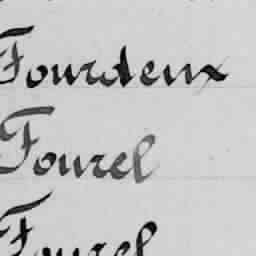 Fourdeux
Fourel
Fourel